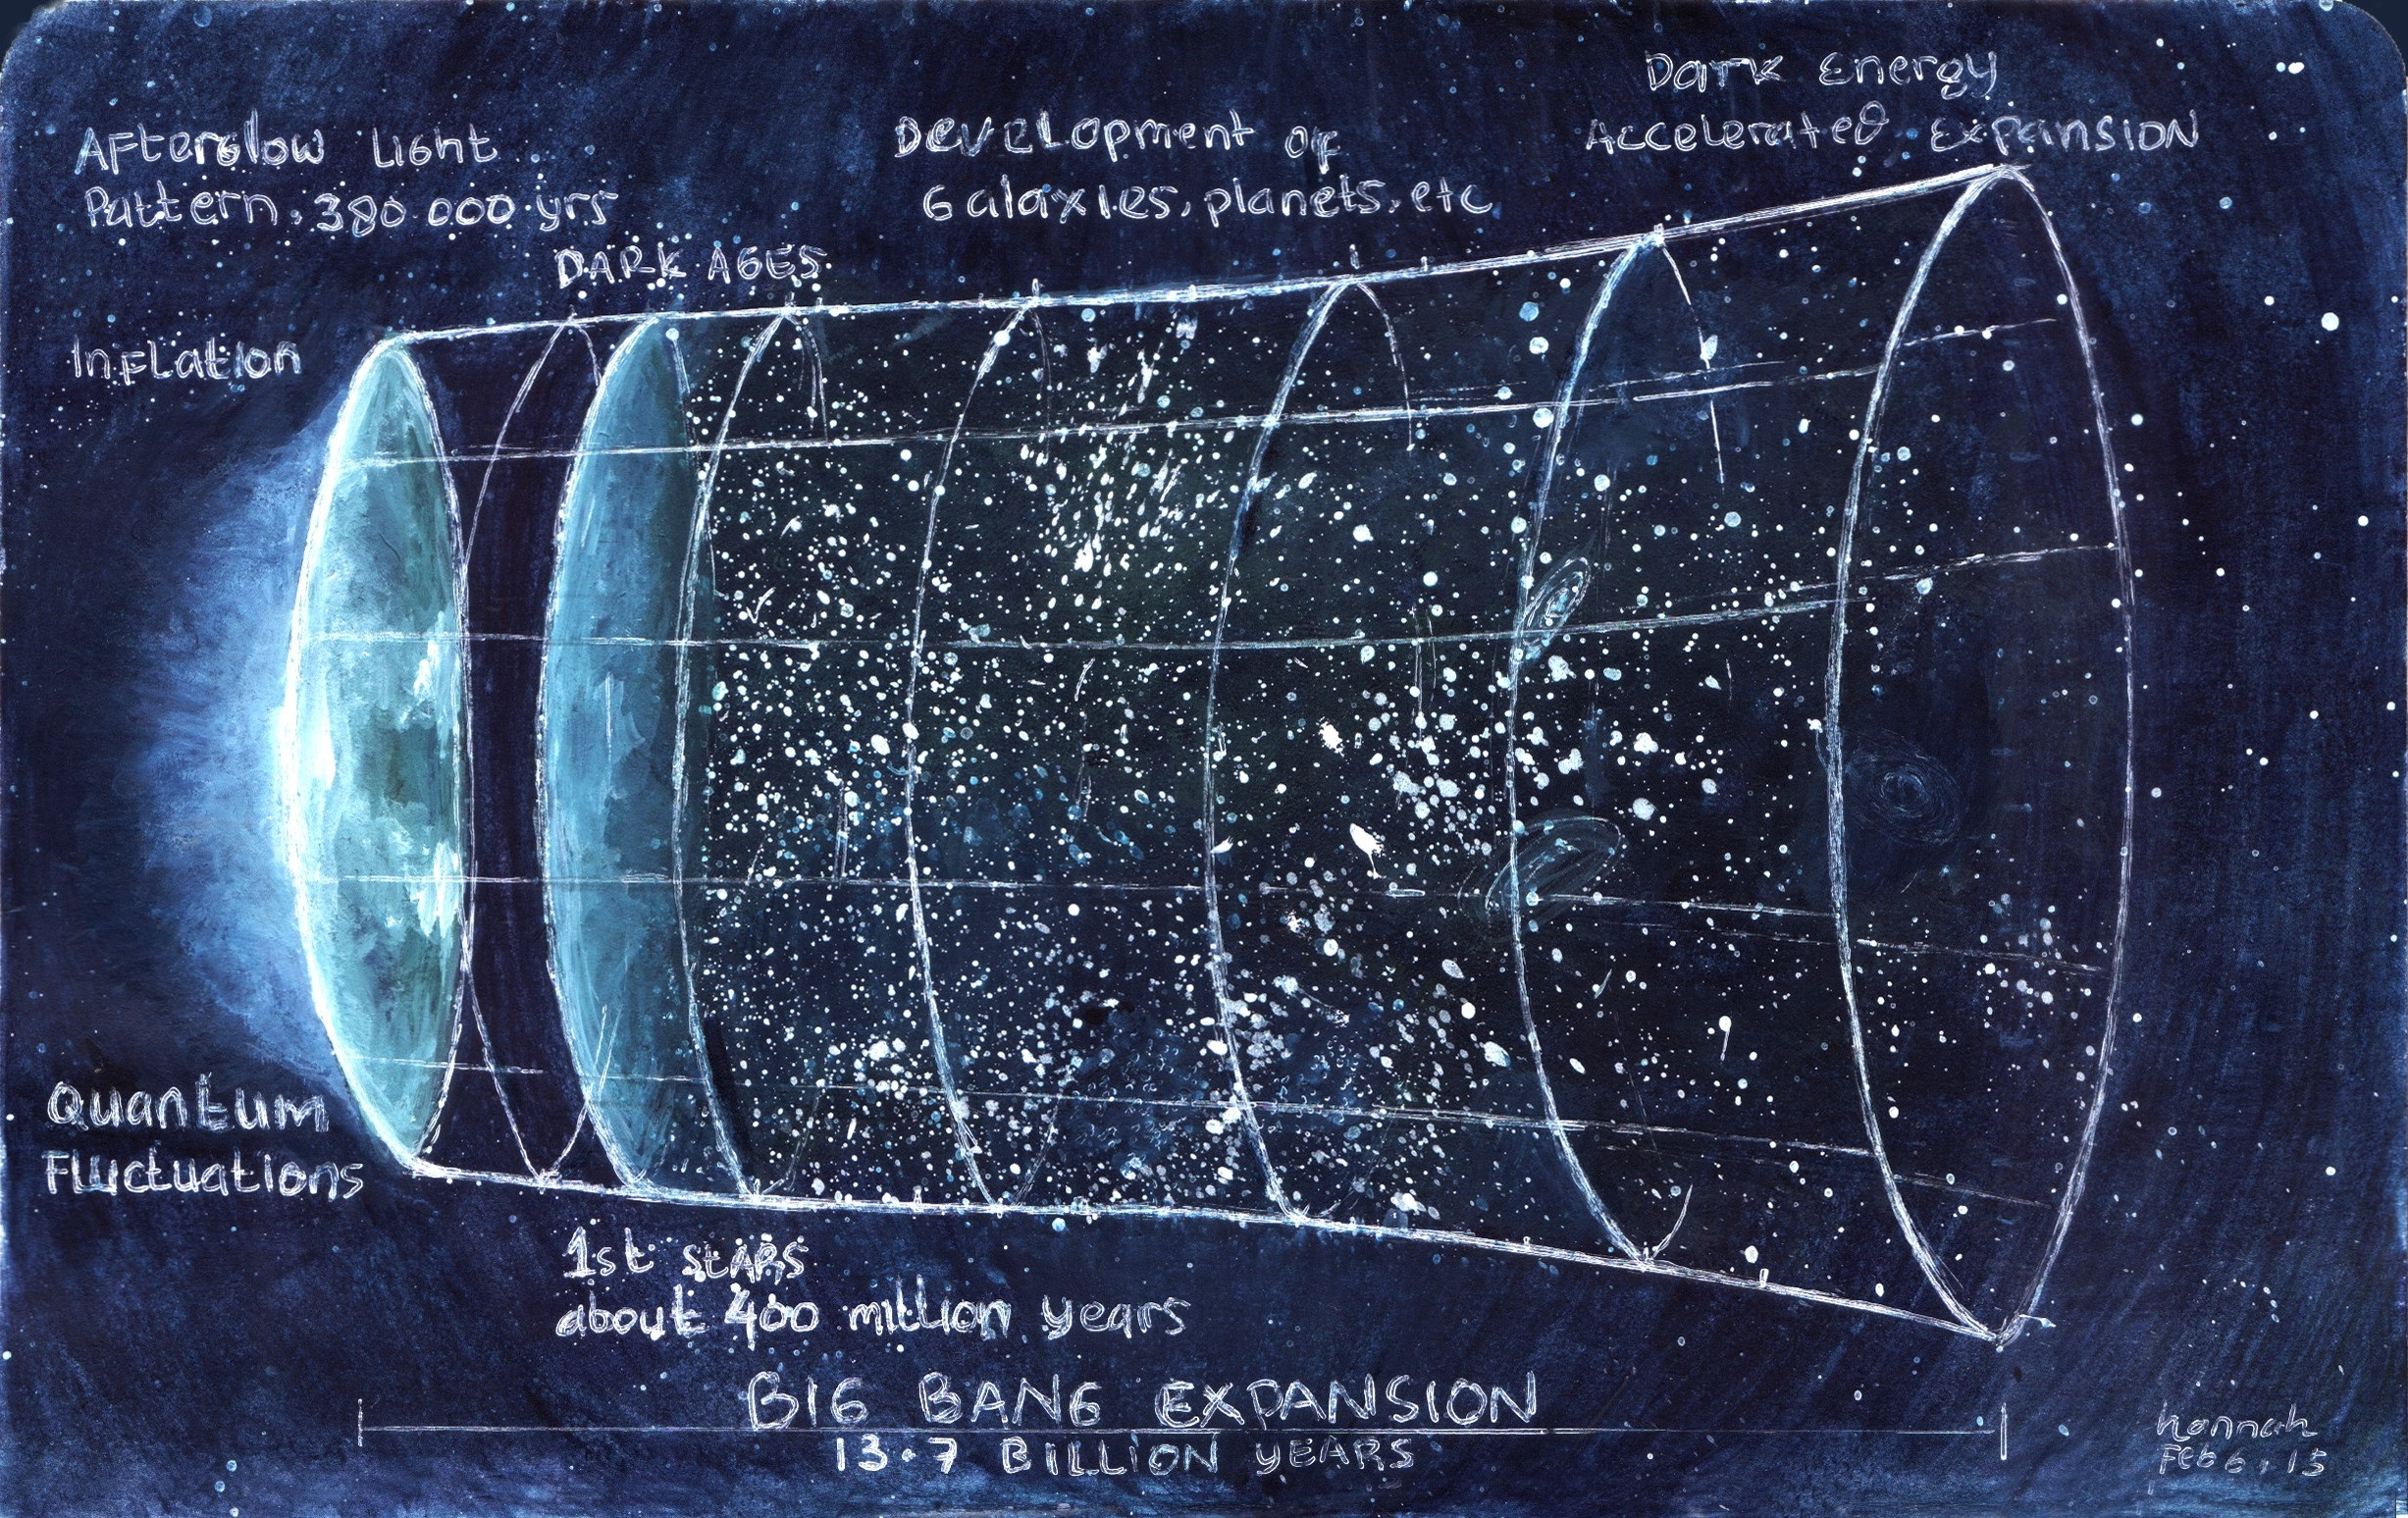 Dark Energy
Accelerated Expansion
Afterglow Light
Pattern. 380 000 yrs
Development of
Galaxies, planets, etc
DARK AGES
Inflation
Quantum
Fluctuations
1st stars
about 400 million years
BIG BANG EXPANSION
13.7 BILLION YEARS
hannah
Feb 6, 15